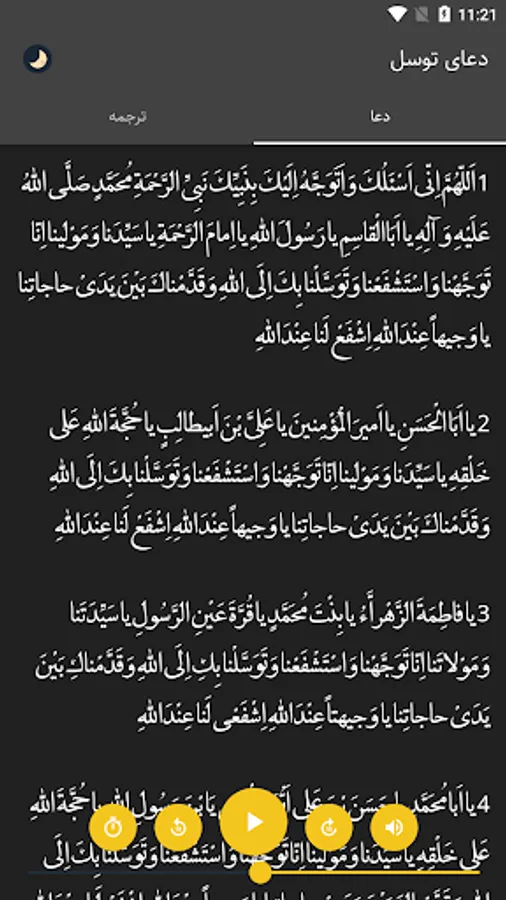 11:21
دعای توسل
دعا
ترجمه
1اَللّهُمَّ اِنّی اَسْئَلُكَ وَ اَتَوَجَّهُ اِلَیْكَ بِنَبِیِّكَ نَبِیِّ الرَّحْمَةِ مُحَمَّدٍ صَلَّی اللهُ
عَلَیْهِ وَ آلِهِ یا اَبَاالْقاسِمِ یا رَسُولَ اللهِ یا اِمامَ الرَّحْمَةِ یا سَیِّدَنا وَ مَوْلینا اِنّا
تَوَجَّهْنا وَ اسْتَشْفَعْنا وَ تَوَسَّلْنا بِكَ اِلَی اللهِ وَ قَدَّمْناكَ بَیْنَ یَدَیْ حاجاتِنا
یا وَجیهاً عِنْدَ اللهِ اِشْفَعْ لَنا عِنْدَ اللهِ
2یا اَبَا الْحَسَنِ یا اَمیرَ الْمُؤْمِنینَ یا عَلِیَّ بْنَ اَبیطالِبٍ یا حُجَّةَ اللهِ عَلی
خَلْقِهِ یا سَیِّدَنا وَ مَوْلینا اِنّا تَوَجَّهْنا وَ اسْتَشْفَعْنا وَ تَوَسَّلْنا بِكَ اِلَی اللهِ
وَ قَدَّمْناكَ بَیْنَ یَدَیْ حاجاتِنا یا وَجیهاً عِنْدَ اللهِ اِشْفَعْ لَنا عِنْدَ اللهِ
3یا فاطِمَةَ الزَّهْراَّءُ یا بِنْتَ مُحَمَّدٍ یا قُرَّةَ عَیْنِ الرَّسُولِ یا سَیِّدَتَنا
وَ مَوْلاتَنا اِنّا تَوَجَّهْنا وَ اسْتَشْفَعْنا وَ تَوَسَّلْنا بِكِ اِلَی اللهِ وَ قَدَّمْناكِ بَیْنَ
یَدَیْ حاجاتِنا یا وَجیهتاً عِنْدَ اللهِ اِشْفَعی لَنا عِنْدَ اللهِ
4یا اَبا مُحَمَّدٍ یا حَسَنَ بْنَ عَلِی یَابْنَ رَسُولِ اللهِ یا حُجَّةَ اللهِ
عَلی خَلْقِهِ یا سَیِّدَنا وَ مَوْلینا اِنّا تَوَجَّهْنا وَ اسْتَشْفَعْنا وَ تَوَسَّلْنا بِكَ اِلَی